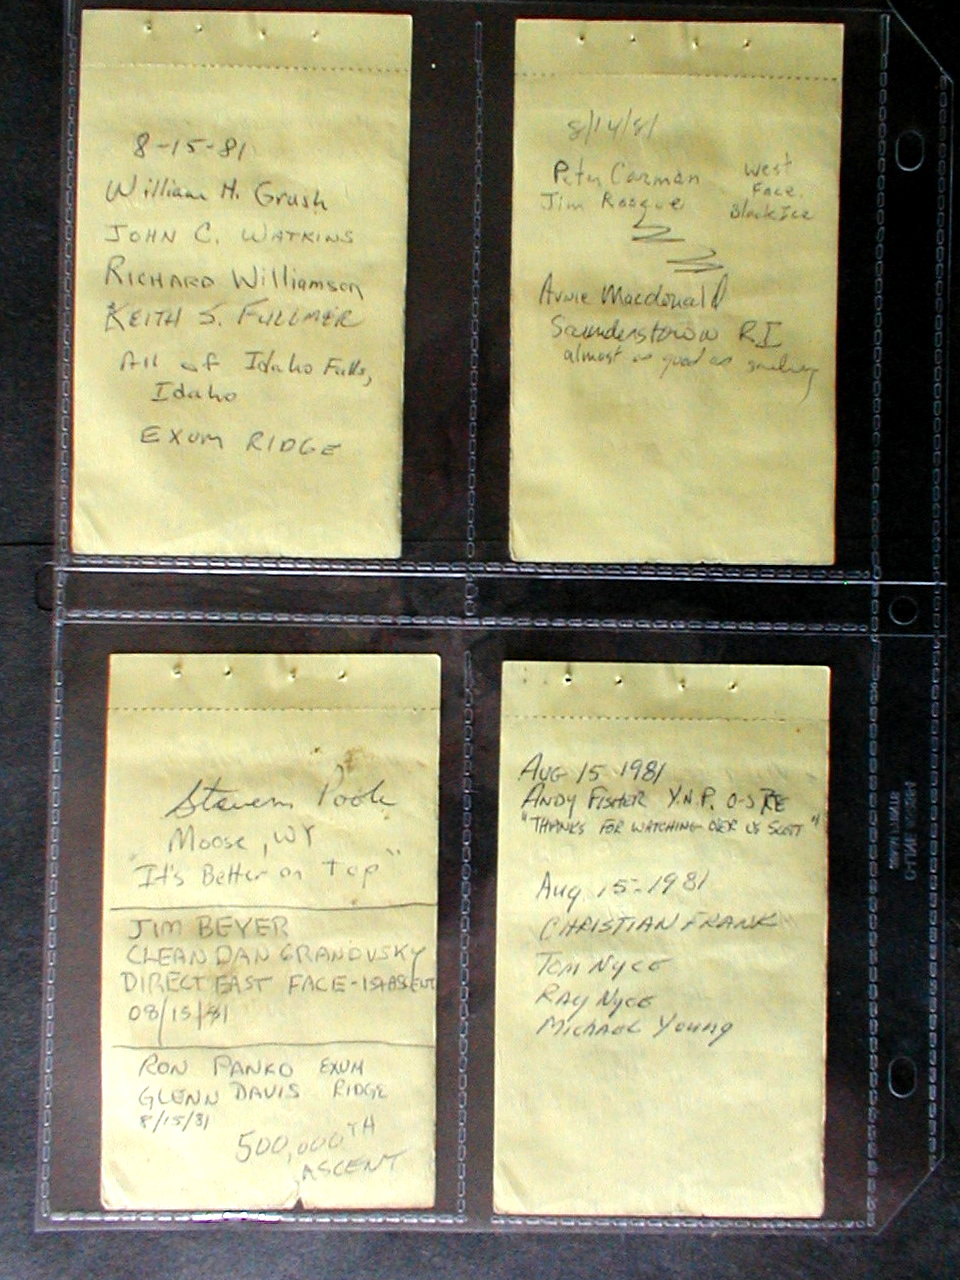 8-15-81
William H. Grush
JOHN C. WATKINS
RICHARD Williamson
KEITH S. FULLMER
All of Idaho Falls,
Idaho
EXUM RIDGE
8/14/81
Peter Carman West
Jim Face
Black Ice
Arnie Macdonald
Saunderstown RI
almost as good as
Steven
Moose, WY
"It's Better on Top"
JIM BEYER
CLEAN DAN GRANDUSKY
DIRECT EAST FACE - 1st ASCENT
08/15/81
RON PANKO EXUM
GLENN DAVIS RIDGE
8/15/81
500,000TH
ASCENT
AUG 15 1981
ANDY FISCHER Y.N.P.
"THANKS FOR WATCHING OVER US SCOTT"
Aug 15-1981
CHRISTIAN FRANK
Tom Nyce
RAY Nyce
Michael Young